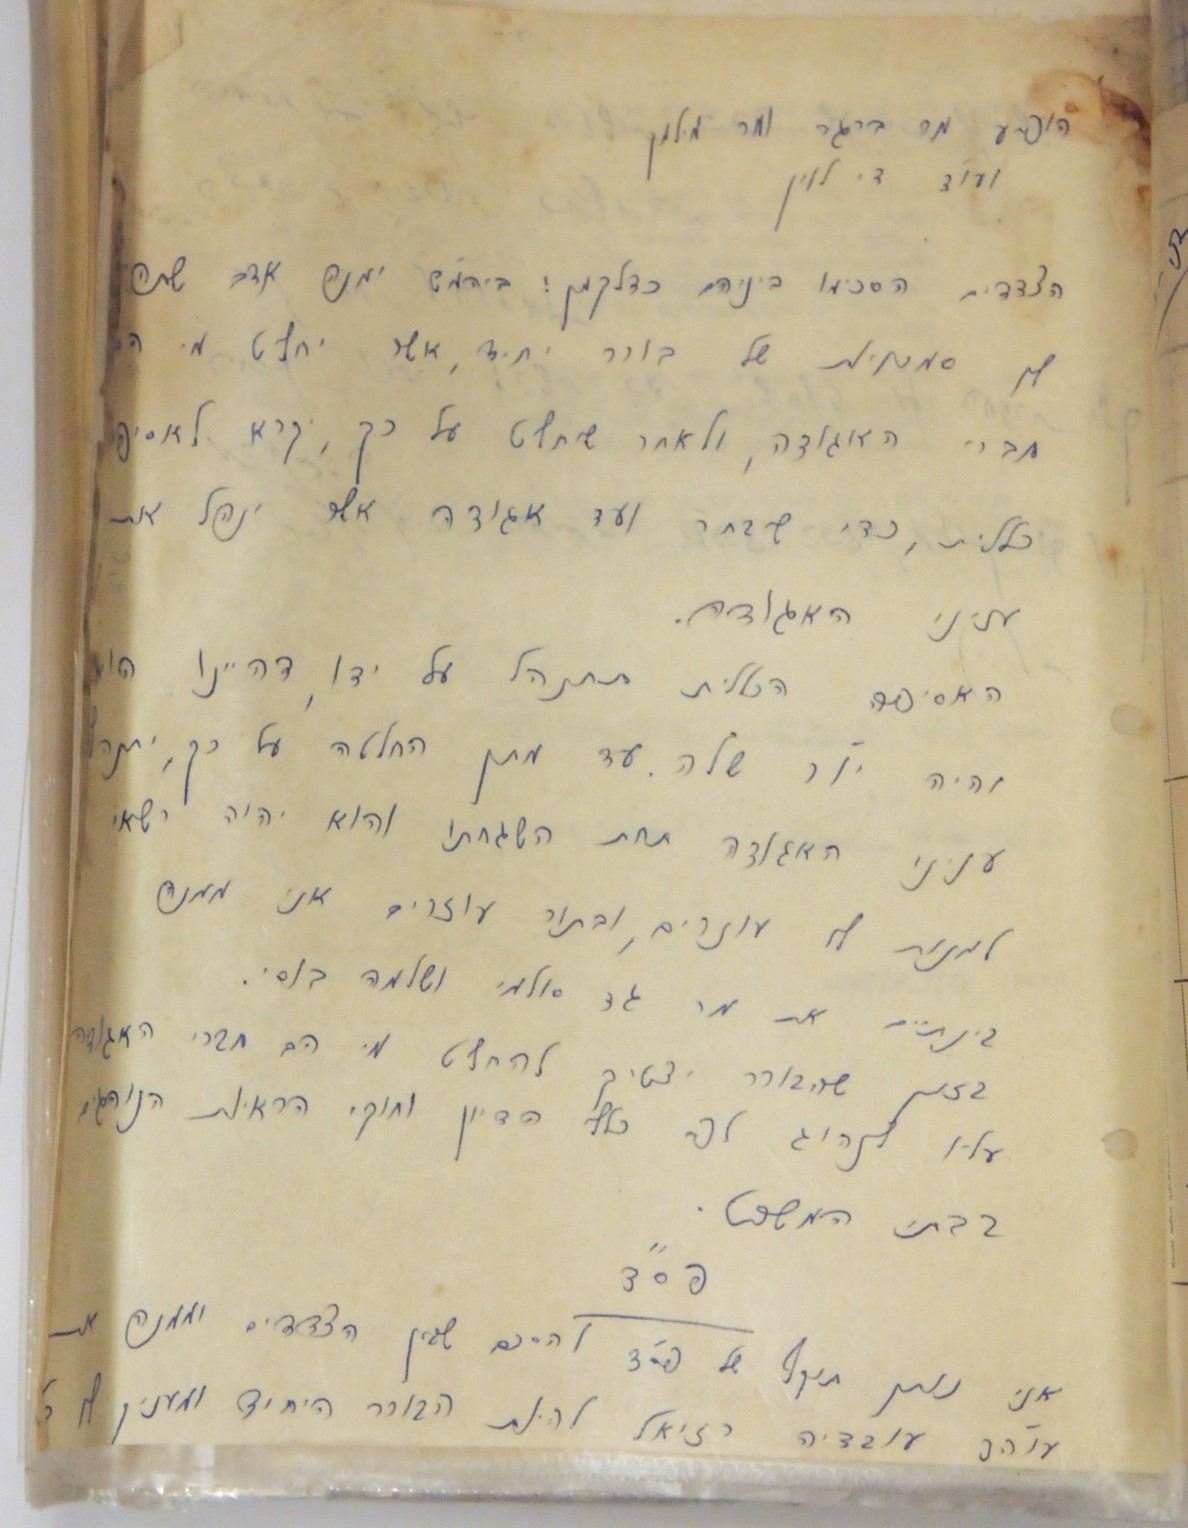 הופיע מר ברגר ומר מילמן
ועו"ד די לוין
הצדדים הסכימו ביניהם כדלקמן: ביהמ"ש ימנה אדם שתהיה
לו סמכויות של בורר יחיד, אשר יחליט מי הם
חברי האגודה, ולאחר שיחליט על כך, יקרא לאסיפה
כללית, כדי שיבחר ועד אגודה אשר ינהל את
עניני האגודה.
האסיפה הכללית תתנהל על ידו, דהיינו הוא
יהיה יו"ר שלה. עד מתן החלטה על כך, יתנהלו
עניני האגודה תחת השגחתו והוא יהיה רשאי
למנות לו עוזרים, ובתור עוזרים אני ממנה
בינתיים את מר גד סולמי ושלמה בוסי.
בזמן שהבורר יצטרך להחליט מי הם חברי האגודה
עליו לנהוג לפי כללי הדיון וחוקי הראיות הנוהגים
בבתי המשפט.
פס"ד
אני נותן תוקף של פס"ד להסכם שבין הצדדים וממנה את
עוה"ד עובדיה רזיאל להיות הבורר היחיד ומעניק לו